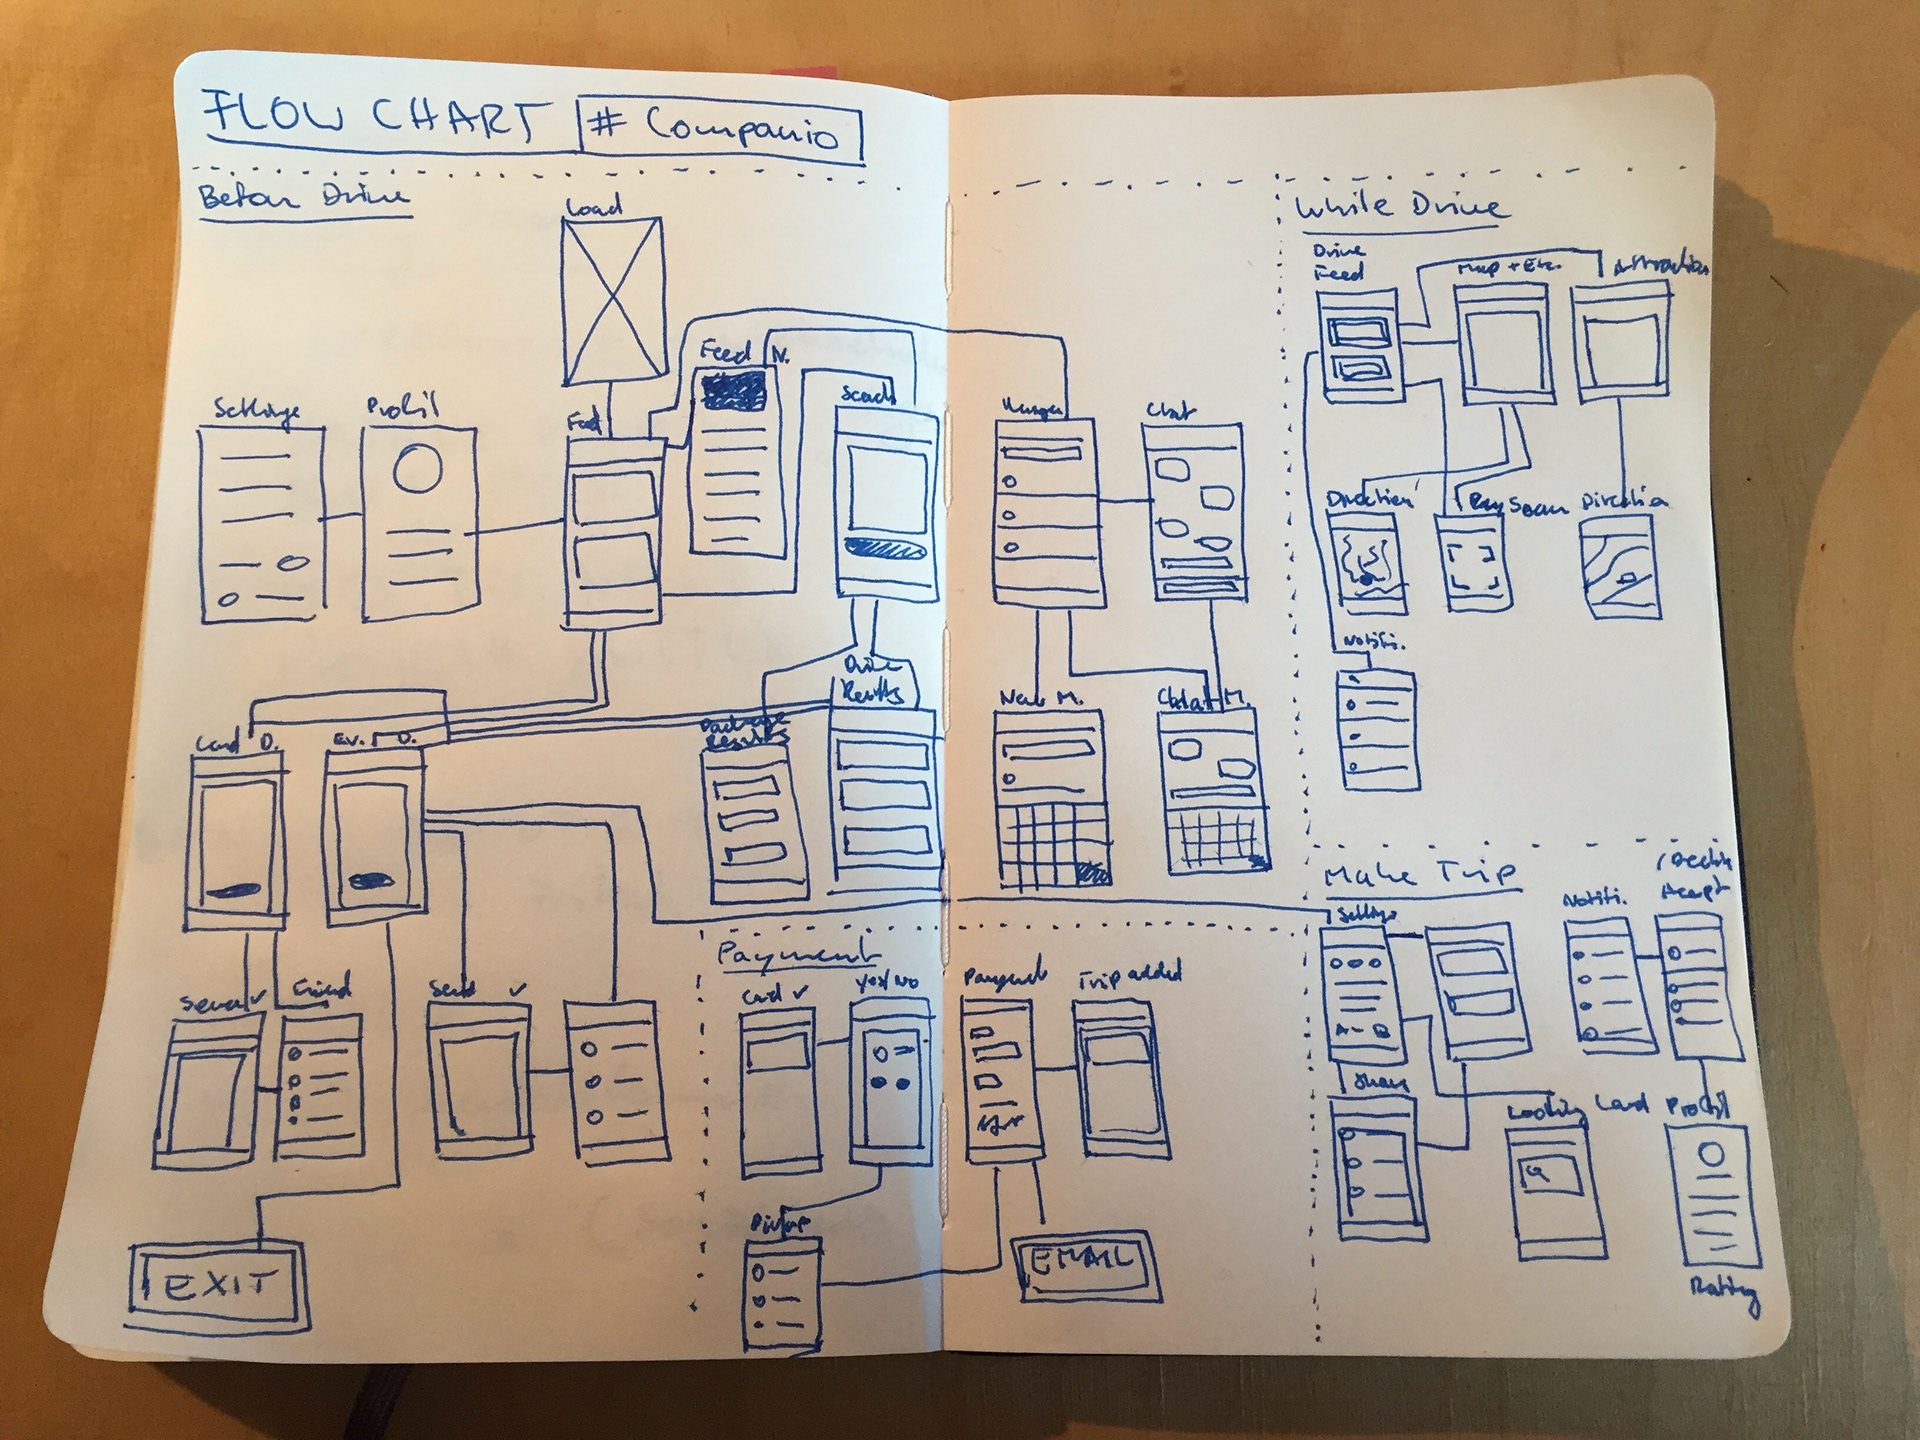 FLOW CHART # Companio
Before Drive
Load
Settings
Profil
Feed
Feed N.
Search
Chat
New M.
Chat M.
Drive
Results
Package
Results
Card D.
Ev. D.
Friend
Send ✓
EXIT
Payment
Card ✓
Yes/No
Payment
Trip added
EMAIL
While Drive
Drive
Feed
Map + Etc.
Attraction
Direction
Scan
Direction
Notifi.
Make Trip
Settings
Share
Notifi.
Accept
Profil
Rating